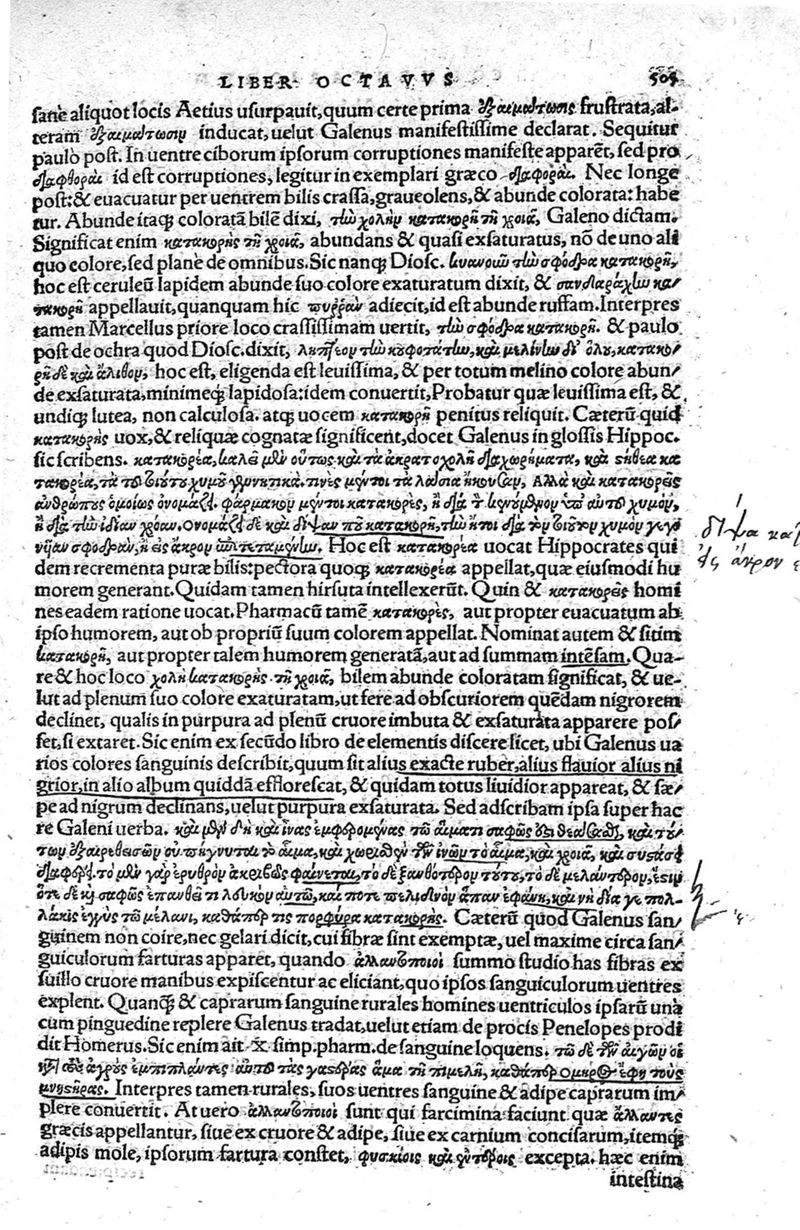 LIBER OCTAVVS 505
sane aliquot locis Aetius usurpauit, quum certe prima ἐξαιμάτωσις frustrata, al-
teram ἐξαιμάτωσιν inducat, uelut Galenus manifestissime declarat. Sequitur
paulo post. In uentre ciborum ipsorum corruptiones manifeste apparēt, sed pro
διαφθοραὶ id est corruptiones, legitur in exemplari græco διαφοραὶ. Nec longe
post: & euacuatur per uentrem bilis crassa, graueolens, & abunde colorata: habe
tur. Abunde itaq; coloratā bilē dixi, τὼ χολὴν κατακορῆ τῇ χροιᾷ, Galeno dictam.
Significat enim κατακορὴς τῇ χροιᾷ, abundans & quasi exsaturatus, nō de uno ali
quo colore, sed plane de omnibus. Sic nanq; Diosc. κυανοῦ τὼ σφόδρα κατακορῆ,
hoc est ceruleū lapidem abunde suo colore exaturatum dixit, & σανδαράχlω κα-
τακορῆ appellauit, quanquam hic πυῤῥὰν adiecit, id est abunde ruffam. Interpres
tamen Marcellus priore loco crassissimam uertit, τὼ σφόδρα κατακορῆ. & paulo
post de ochra quod Diosc. dixit, ληπτέον τὼ κουφοτάτlω, καὶ μελίνlω δι' ὅλου, κατακο/
ρῆ δὲ καὶ ἄλιθον, hoc est, eligenda est leuissima, & per totum melino colore abun/
de exsaturata, minimeq; lapidosa: idem conuertit, Probatur quæ leuissima est, &
undiq; lutea, non calculosa. atq; uocem κατακορῆ penitus reliquit. Cæterū quid
κατακορὴς uox, & reliquæ cognatæ significent, docet Galenus in glossis Hippoc.
sic scribens. κατακορέα, καλεῖ μὲν οὕτως καὶ τὰ ἀκρατοχολῆ διαχωρήματα, καὶ στήθεα κα
τακορέα, τὰ τοῦ τοιούτου χυμοῦ γεννητικά. τινὲς μέντοι τὰ λάσια ἤκουσαν. Ἀλλὰ καὶ κατακορεῖς
ἀνθρώπους ὁμοίως ὀνομάζει. φάρμακον μέντοι κατακορὲς, ἢ διὰ τ κενούμενον ὑπ' αὐτοῦ χυμὸν,
ἢ διὰ τlὼ ἰδίαν χρόαν. ὀνομάζει δὲ καὶ δίψαν που κατακορῆ, τlὼ ἤτοι διὰ τὸν τοιοῦτον χυμὸν γεγο
νῆαν σφοδρὰν, ἢ εἰς ἄκρον ἐπιτεταμένlω. Hoc est κατακορέα uocat Hippocrates qui
dem recrementa puræ bilis: pectora quoq; κατακορέα appellat, quæ eiusmodi hu
morem generant. Quidam tamen hirsuta intellexerūt. Quin & κατακορεῖς homi
nes eadem ratione uocat. Pharmacū tamē κατακορὲς, aut propter euacuatum ab
ipso humorem, aut ob propriū suum colorem appellat. Nominat autem & sitim
κατακορῆ, aut propter talem humorem generatā, aut ad summam intēsam. Qua-
re & hoc loco χολὴ κατακορὴς τῇ χροιᾷ, bilem abunde coloratam significat, & ue-
lut ad plenum suo colore exaturatam, ut fere ad obscuriorem quēdam nigrorem
declinet, qualis in purpura ad plenū cruore imbuta & exsaturata apparere pos/
set, si extaret. Sic enim ex secūdo libro de elementis discere licet, ubi Galenus ua
rios colores sanguinis describit, quum sit alius exacte ruber, alius flauior alius ni
grior, in alio album quiddā efflorescat, & quidam totus liuidior appareat, & sæ/
pe ad nigrum declinans, uelut purpura exsaturata. Sed adscribam ipsa super hac
re Galeni uerba. καὶ μὲν δὴ καὶ ἶνας ἐμφερομένας τῷ αἵματι σαφῶς ἔστι θεάσασθαι, καὶ τού/
των ἐξαιρεθεισῶν οὐ πήγνυται τὸ αἷμα, καὶ χωρισθὲν τῶν ἰνῶν τὸ αἷμα, καὶ χροιᾷ, καὶ συστάσει
διαφέρει. τὸ μὲν γὰρ ἐρυθρὸν ἀκριβῶς φαίνεται, τὸ δὲ ξανθότερον τούτου, τὸ δὲ μελάντερον, ἔστιν
ὅτε δὲ κỳ σαφῶς ἐπανθεῖ τι λευκὸν αὐτῷ, καὶ ποτε πελιδνὸν ἅπαν ἐφάνη, καὶ νὴ δία γε πολ-
λάκις ἐγγὺς τῷ μέλανι, καθάπερ τις πορφύρα κατακορής. Cæterū quod Galenus san/
guinem non coire, nec gelari dicit, cui fibræ sint exemptæ, uel maxime circa san/
guiculorum farturas apparet, quando ἀλλαντοποιοὶ summo studio has fibras ex
suillo cruore manibus expiscentur ac eliciant, quo ipsos sanguiculorum uentres
explent. Quanq̄ & caprarum sanguine rurales homines uentriculos ipsarū unà
cum pinguedine replere Galenus tradat, uelut etiam de procis Penelopes prodi
dit Homerus. Sic enim ait x. simp. pharm. de sanguine loquens. τῷ δὲ τῶν αἰγῶν οἱ
κατ' ἀγρὸς ἐμπιπλάντες αὐτοῦ τὰς γαστέρας ἅμα τῇ πιμελῇ, καθάπερ ὅμηρΘ ἔφη τοὺς
μνηστῆρας. Interpres tamen rurales, suos uentres sanguine & adipe caprarum im/
plere conuertit. At uero ἀλλαντοποιοὶ sunt qui farcimina faciunt quæ ἄλλαντες
græcis appellantur, siue ex cruore & adipe, siue ex carnium concisarum, itemq;
adipis mole, ipsorum fartura constet, φυσκίοις καὶ ἐντέροις excepta. hæc enim
intestina
δίψα κατ
εἰς ἄκρον ε